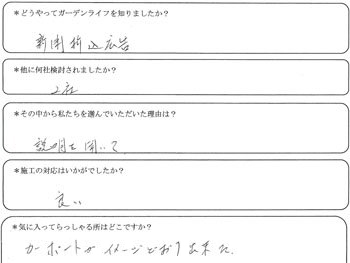 *どうやってガーデンライフを知りましたか？
新聞折込広告
*他に何社検討されましたか？
2社
*その中から私たちを選んでいただいた理由は？
説明を聞いて
*施工の対応はいかがでしたか？
良い
*気に入ってらっしゃる所はどこですか？
カーポートがイメージどおり出来た.